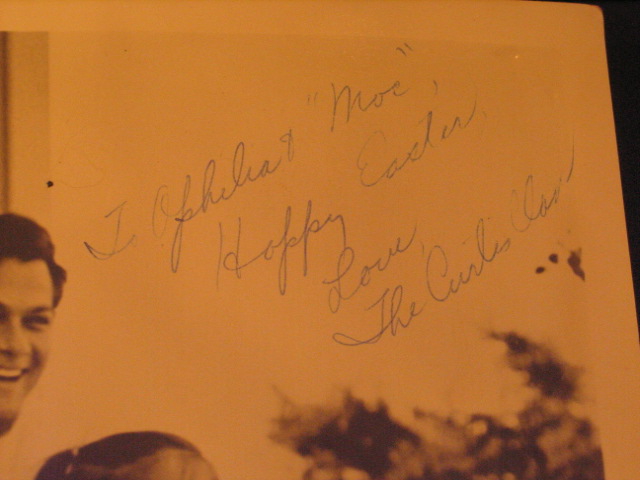 To Ophelia & "Moe",
Happy Easter,
Love,
The Curtis Clan